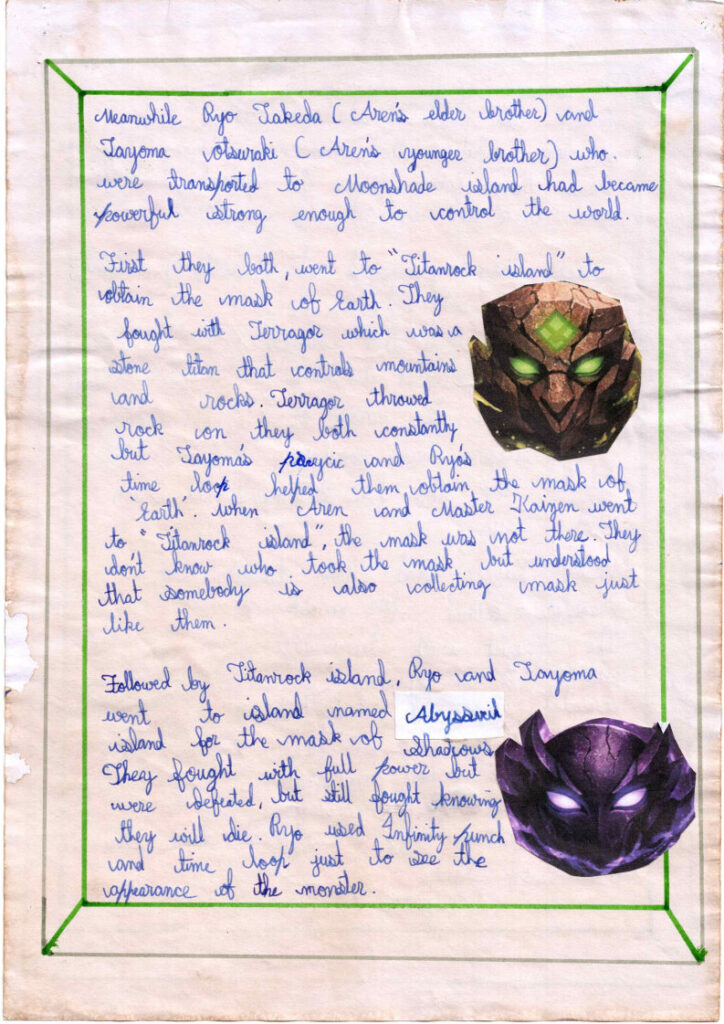 Meanwhile Ryo Takeda ( Aren's elder brother) and
Tayoma otsuraki ( Aren's younger brother) who.
were transported to Moonshade island had became
powerful strong enough to control the world.
First they both, went to "Titanrock island" to
obtain the mask of Earth. They
fought with Terragor which was a
stone titan that controls mountains
and rocks. Terragor throwed
rock on they both constantly
but Tayoma's and Ryo's
time loop helped them obtain the mask of
'Earth'. when Aren and Master Kaizen went
to "Titanrock island", the mask was not there. They
don't know who took the mask but understood
that somebody is also collecting mask just
like them.
Followed by Titanrock island, Ryo and Tayoma
went to island named Abyssveil
island for the mask of shadows
They fought with full power but
were defeated, but still fought knowing
they will die. Ryo used Infinity punch
and time loop just to see the
appearance of the monster.